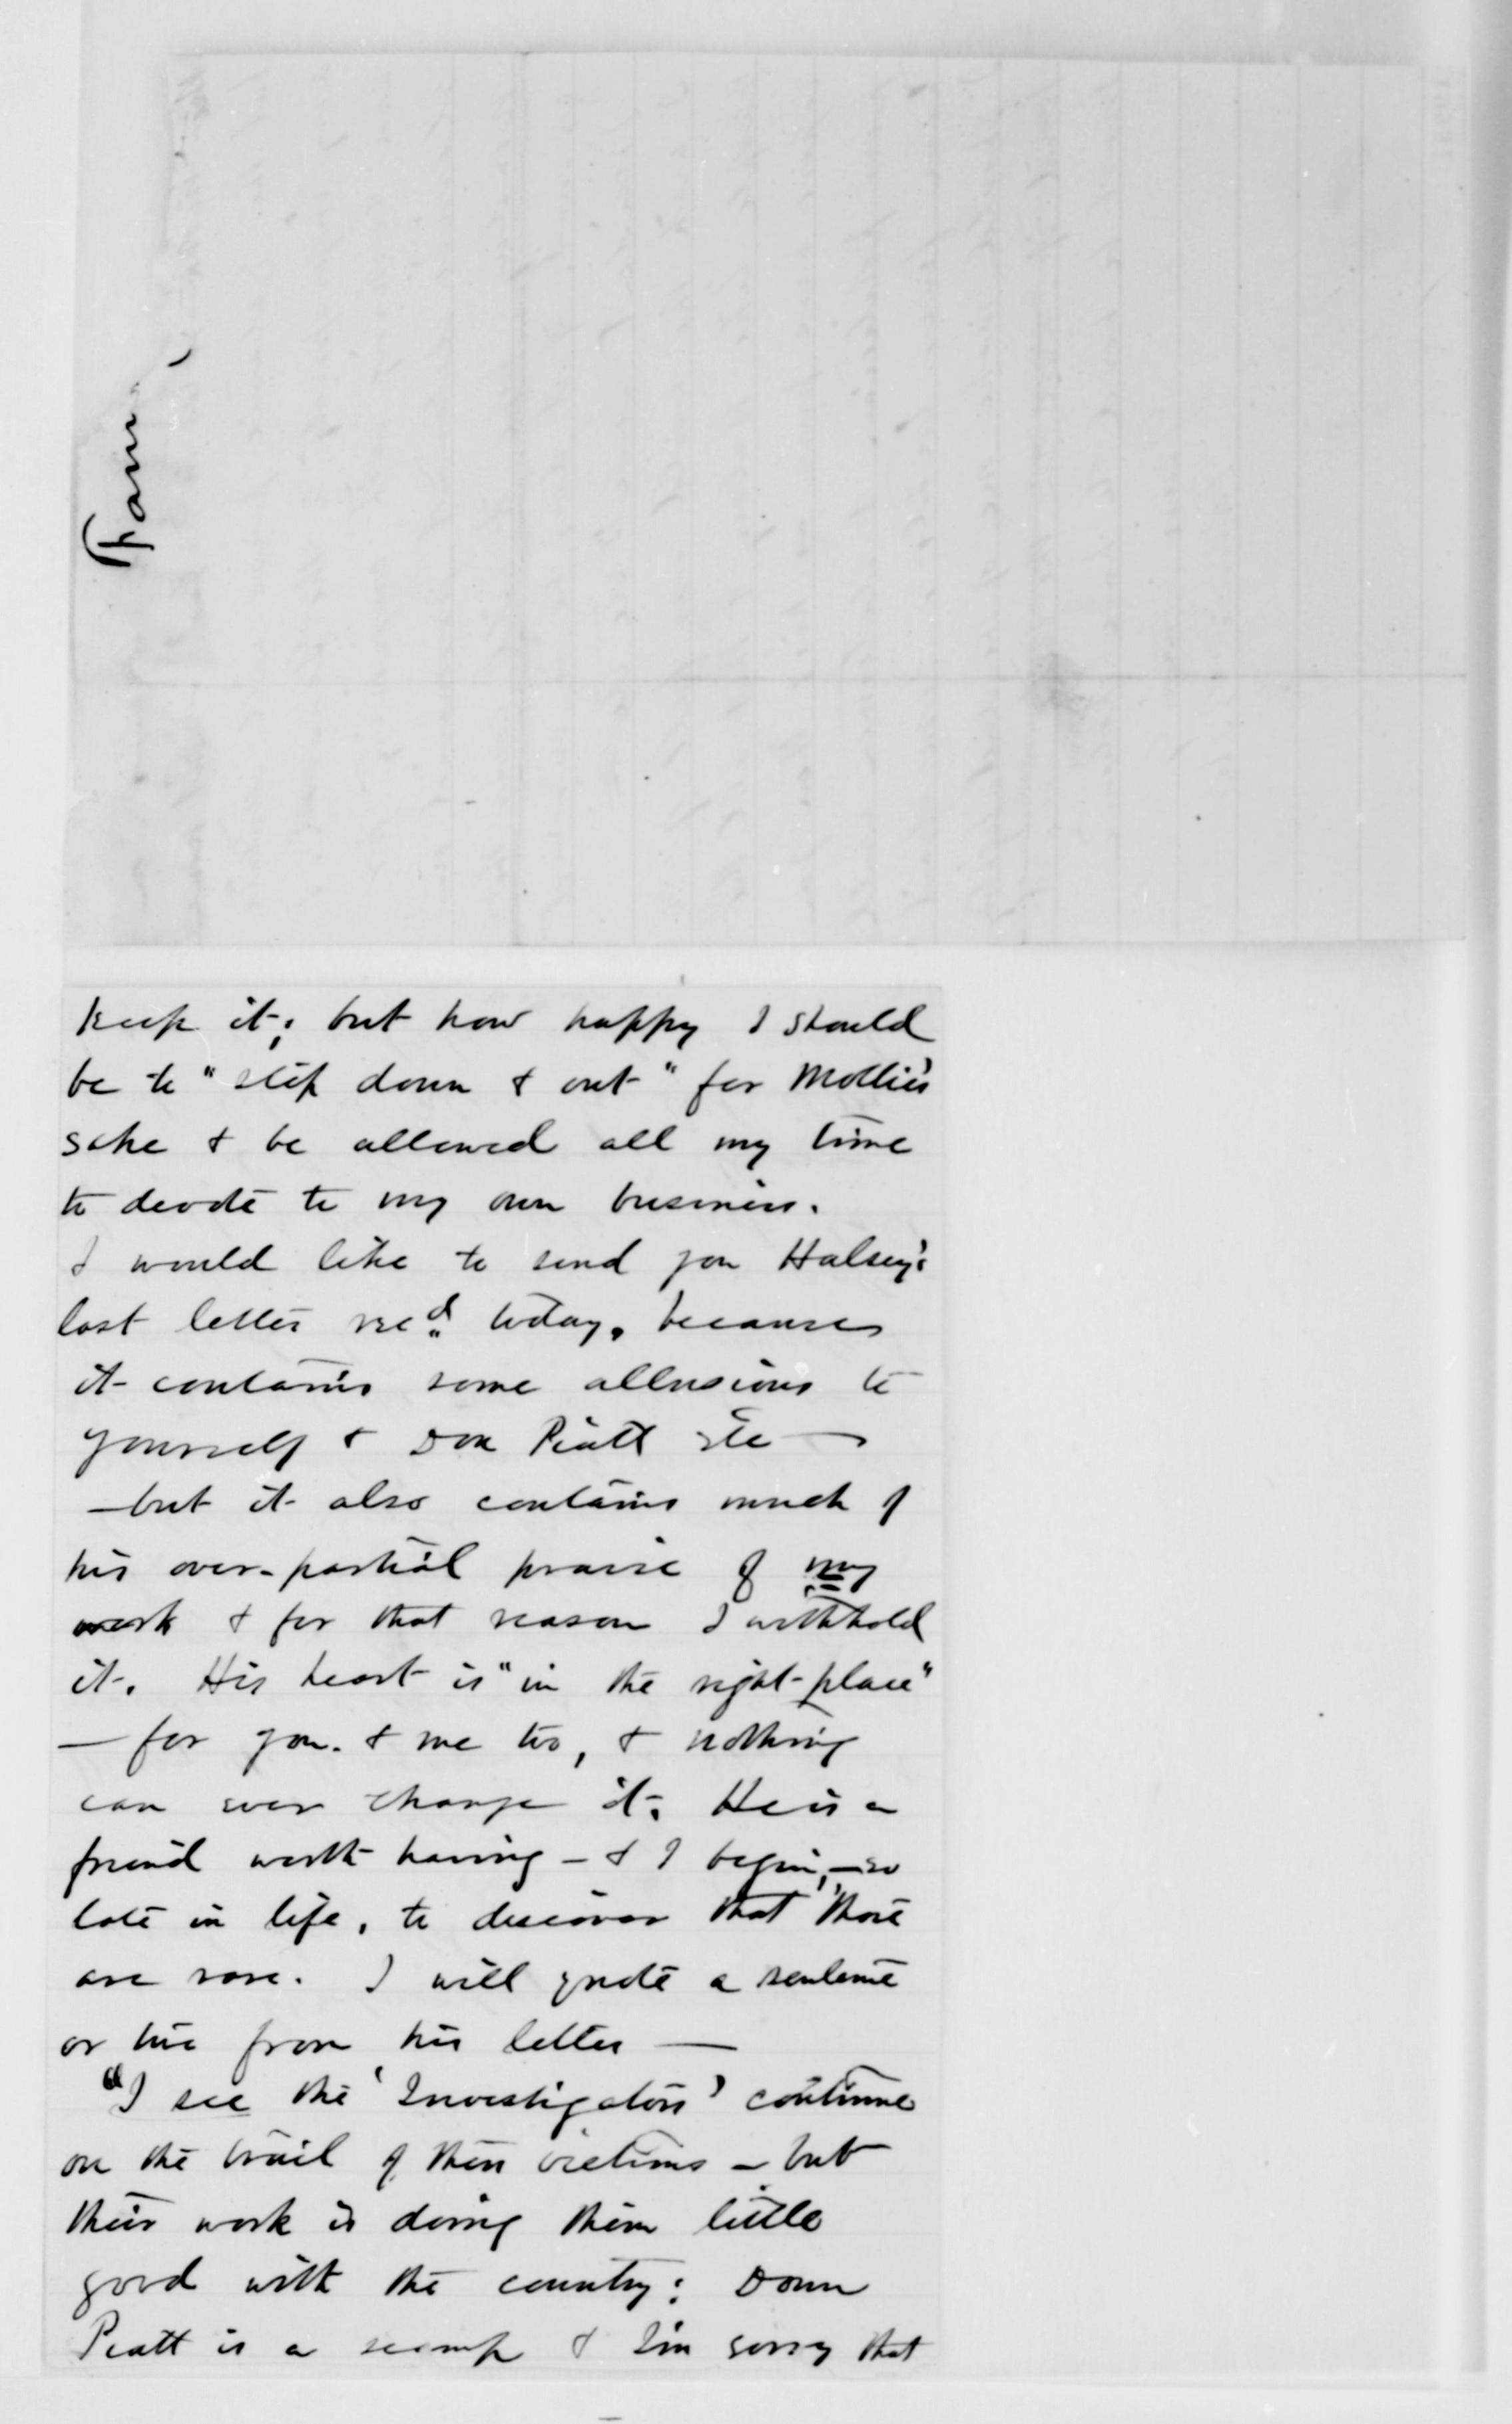 (Fam.)
keep it; but how happy I should
be to "step down & out" for Mollie's
sake & be allowed all my time
to devote to my own business.
I would like to send you Halsey's
last letter recd. today, because
it contains some allusions to
yourself & Don Piatt etc —
— but it also contains much of
his over-partial praise of my
work & for that reason I withhold
it. His heart is "in the right place"
— for you. & me too, & nothing
can ever change it. He is a
friend worth having — & I begin, — so
late in life, to discover that those
are rare. I will quote a sentence
or two from his letter —
"I see the 'Investigators' continue
on the trail of their victims — but
their work is doing them little
good with the country: Donn
Piatt is a scamp & I'm sorry that